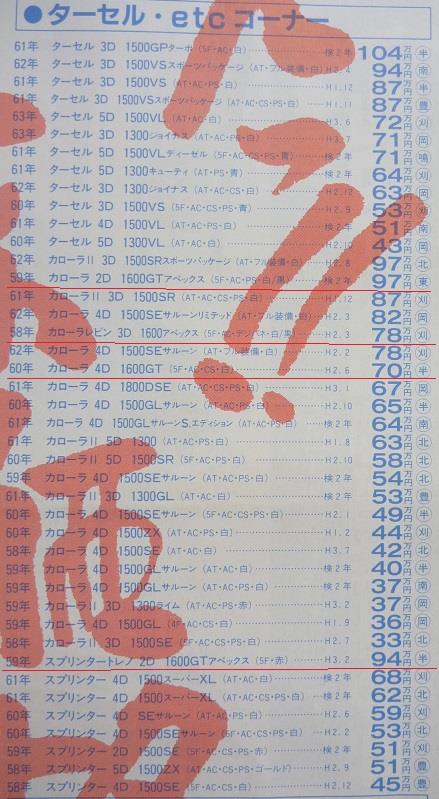 ●ターセル・etcコーナー
61年 ターセル 3D 1500GPターボ(5F・AC・白)………検2年 104万円 半
62年 ターセル 3D 1500VSスポーツパッケージ(AT・フル装備・白)H3.4 94万円 南
61年 ターセル 3D 1500VS(AT・AC・PS・白)………H1.12 87万円 半
61年 ターセル 3D 1500VSスポーツパッケージ(AT・AC・CS・PS・白)…H1.11 87万円 豊
63年 ターセル 5D 1500VL(AT・AC・白)………H3.6 72万円 刈
63年 ターセル 3D 1300ジョイナス(AT・AC・PS・白)………H3.7 71万円 岡
61年 ターセル 5D 1500VLディーゼル(5F・AC・CS・PS・青)………検2年 71万円 鳴
61年 ターセル 5D 1300キューティ(AT・PS・青)………検2年 64万円 刈
62年 ターセル 3D 1300ジョイナス(AT・AC・CS・白)………H2.12 63万円 岡
60年 ターセル 3D 1500VS(5F・AC・CS・PS・青)………H2.9 53万円 刈
61年 ターセル 4D 1500VL(AT・AC・PS・白)………検2年 51万円 南
60年 ターセル 5D 1300VL(AT・AC・白)………H2.10 43万円 岡
62年 カローラII 3D 1500SRスポーツパッケージ(AT・フル装備・白)…H2.8 97万円 北
59年 カローラ 2D 1600GTアペックス(5F・AC・PS・白/黒)………検2年 97万円 東
61年 カローラII 3D 1500SR(AT・AC・CS・PS・白)………H1.12 87万円 刈
62年 カローラ 4D 1500SEサルーンリミテッド(AT・フル装備・白)…H2.3 82万円 岡
58年 カローラレビン 3D 1600アペックス(5F・AC・デジパネ・白/黒)…H2.3 78万円 刈
62年 カローラ 4D 1500SEサルーン(AT・フル装備・白)………H2.2 78万円 刈
60年 カローラ 4D 1600GT(5F・AC・CS・白)………H2.6 70万円 半
61年 カローラ 4D 1800DSE(AT・AC・CS・PS・白)………H3.1 67万円 岡
60年 カローラ 4D 1500GLサルーン(AT・AC・PS・白)………H2.10 65万円 半
61年 カローラ 4D 1500GLサルーンS.エディション(AT・AC・PS・白)…検2年 64万円 南
61年 カローラII 5D 1300(AT・AC・PS・白)………H1.8 63万円 北
60年 カローラII 5D 1500SR(5F・AC・PS・白)………H2.10 58万円 北
59年 カローラ 4D 1500SEサルーン(AT・AC・PS・白)………検2年 54万円 北
61年 カローラII 3D 1300GL(AT・AC・PS・白)………検2年 53万円 豊
60年 カローラ 4D 1500SEサルーン(AT・AC・PS・白)………H2.1 49万円 半
60年 カローラ 4D 1500ZX(AT・AC・PS・白)………H1.2 44万円 刈
58年 カローラ 4D 1500SE(AT・AC・白)………H3.7 42万円 北
59年 カローラ 4D 1500GLサルーン(AT・AC・PS・白)………検2年 40万円 半
59年 カローラ 4D 1500GLサルーン(AT・AC・PS・白)………検2年 37万円 南
59年 カローラII 3D 1300ライム(AT・AC・PS・赤)………H3.2 37万円 岡
59年 カローラ 4D 1500GL(4F・AC・CS・白)………H1.9 36万円 岡
58年 カローラII 3D 1500SE(AT・AC・CS・PS・白)………H2.7 33万円 北
59年 スプリンタートレノ 2D 1600GTアペックス(5F・赤)………H3.2 94万円 半
61年 スプリンター 4D 1500スーパーXL(AT・AC・白)………検2年 68万円 刈
61年 スプリンター 4D 1500スーパーXL(AT・AC・CS・PS・白)…検2年 62万円 北
60年 スプリンター 4D SEサルーン(AT・AC・PS・白)………H2.6 59万円 刈
60年 スプリンター 4D 1500SEサルーン(5F・AC・CS・PS・白)…H2.2 53万円 北
59年 スプリンター 2D 1500SE(5F・AC・CS・PS・赤)………検2年 51万円 刈
58年 スプリンター 5D 1500ZX(AT・AC・PS・ゴールド)………H2.9 51万円 豊
58年 スプリンター 4D 1500SE(AT・AC・CS・PS・白)………H2.12 45万円 豊